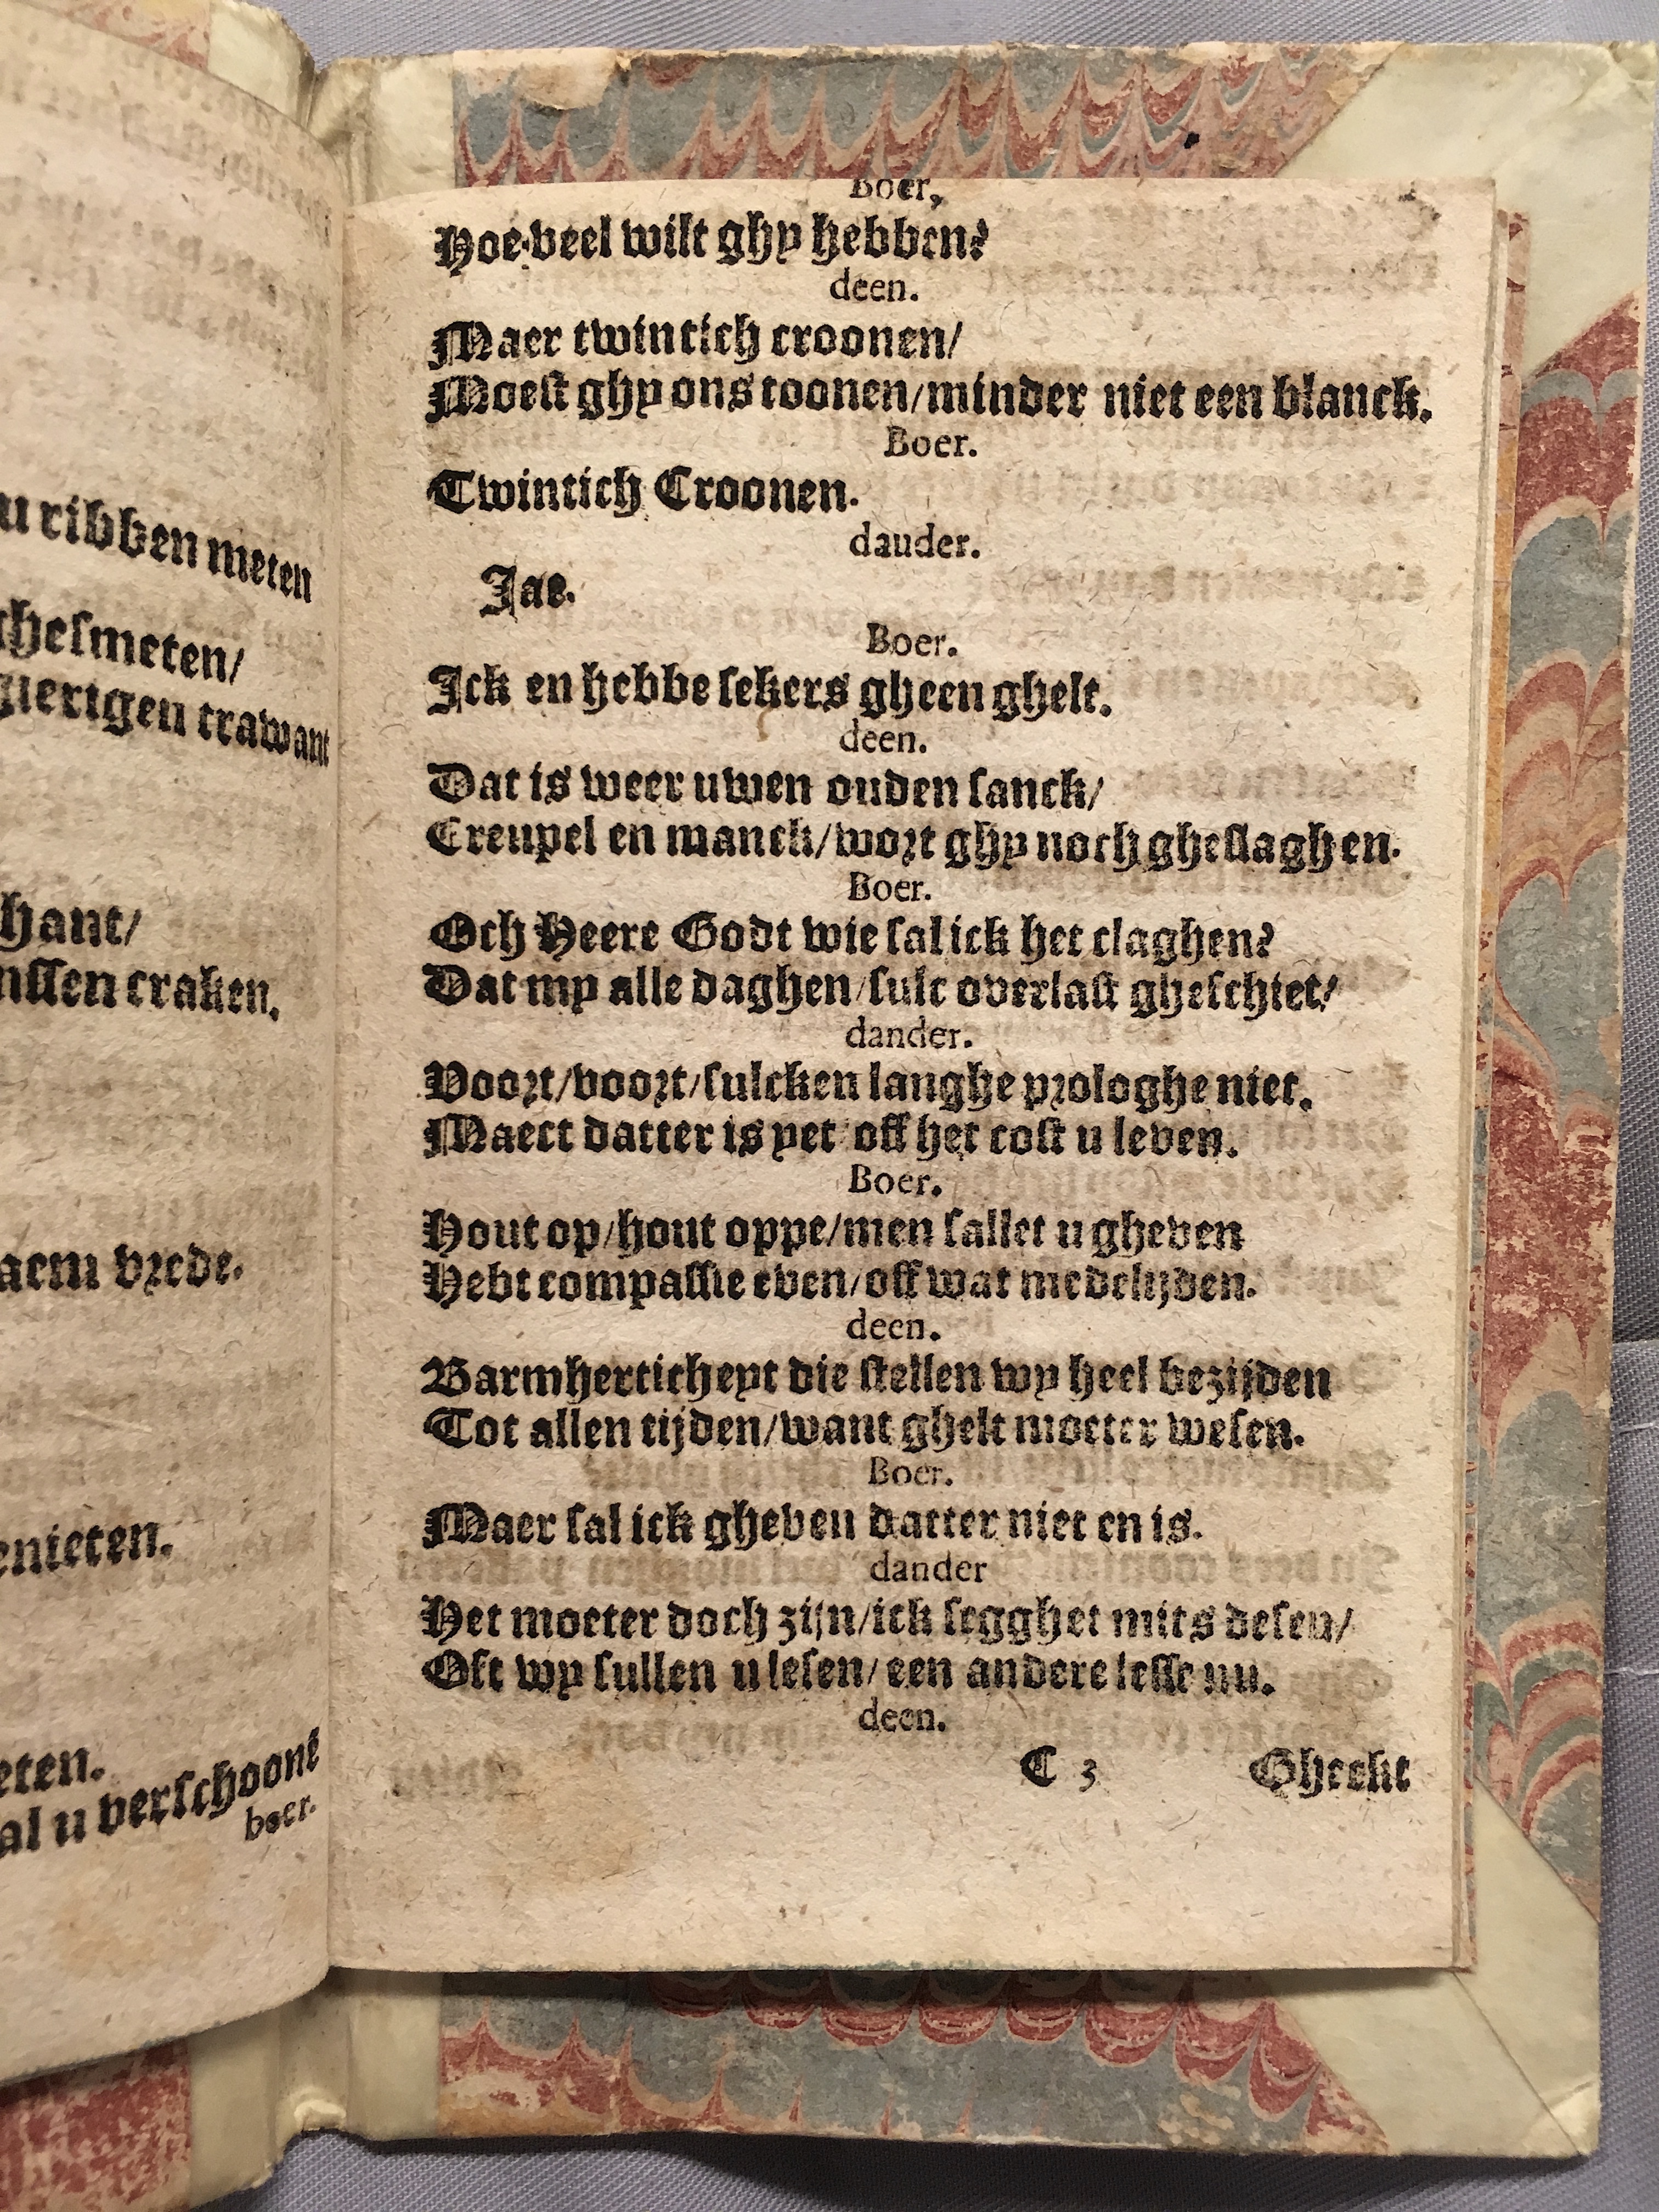 u ribben meten
ghesmeten/
gierigen trawant
hant/
nssen craken.
aem vrede.
enieten.
eten.
al u verschoont
boer.
Boer,
Hoe veel wilt ghy hebben?
deen.
Maer twintich croonen/
Moest ghy ons toonen/minder niet een blanck.
Boer.
Twintich Croonen.
dauder.
Jae.
Boer.
Jck en hebbe sekers gheen ghelt.
deen.
Dat is weer uwen ouden sanck/
Creupel en manck/wort ghy noch gheslaghen.
Boer.
Och Heere Godt wie sal ick het claghen?
Dat my alle daghen/sulc overlast gheschiet/
dander.
Voort/voort/sulcken langhe prologhe niet.
Maect datter is yet off het cost u leven.
Boer.
Hout op/hout oppe/men sallet u gheven
Hebt compassie even/off wat medelijden.
deen.
Barmherticheyt die stellen wy heel bezijden
Tot allen tijden/want ghelt moeter wesen.
Boer.
Maer sal ick gheven datter niet en is.
dander
Het moeter doch zijn/ick segghet mits desen/
Oft wy sullen u lesen/een andere lesse nu.
deen.
C 3 Gheckt